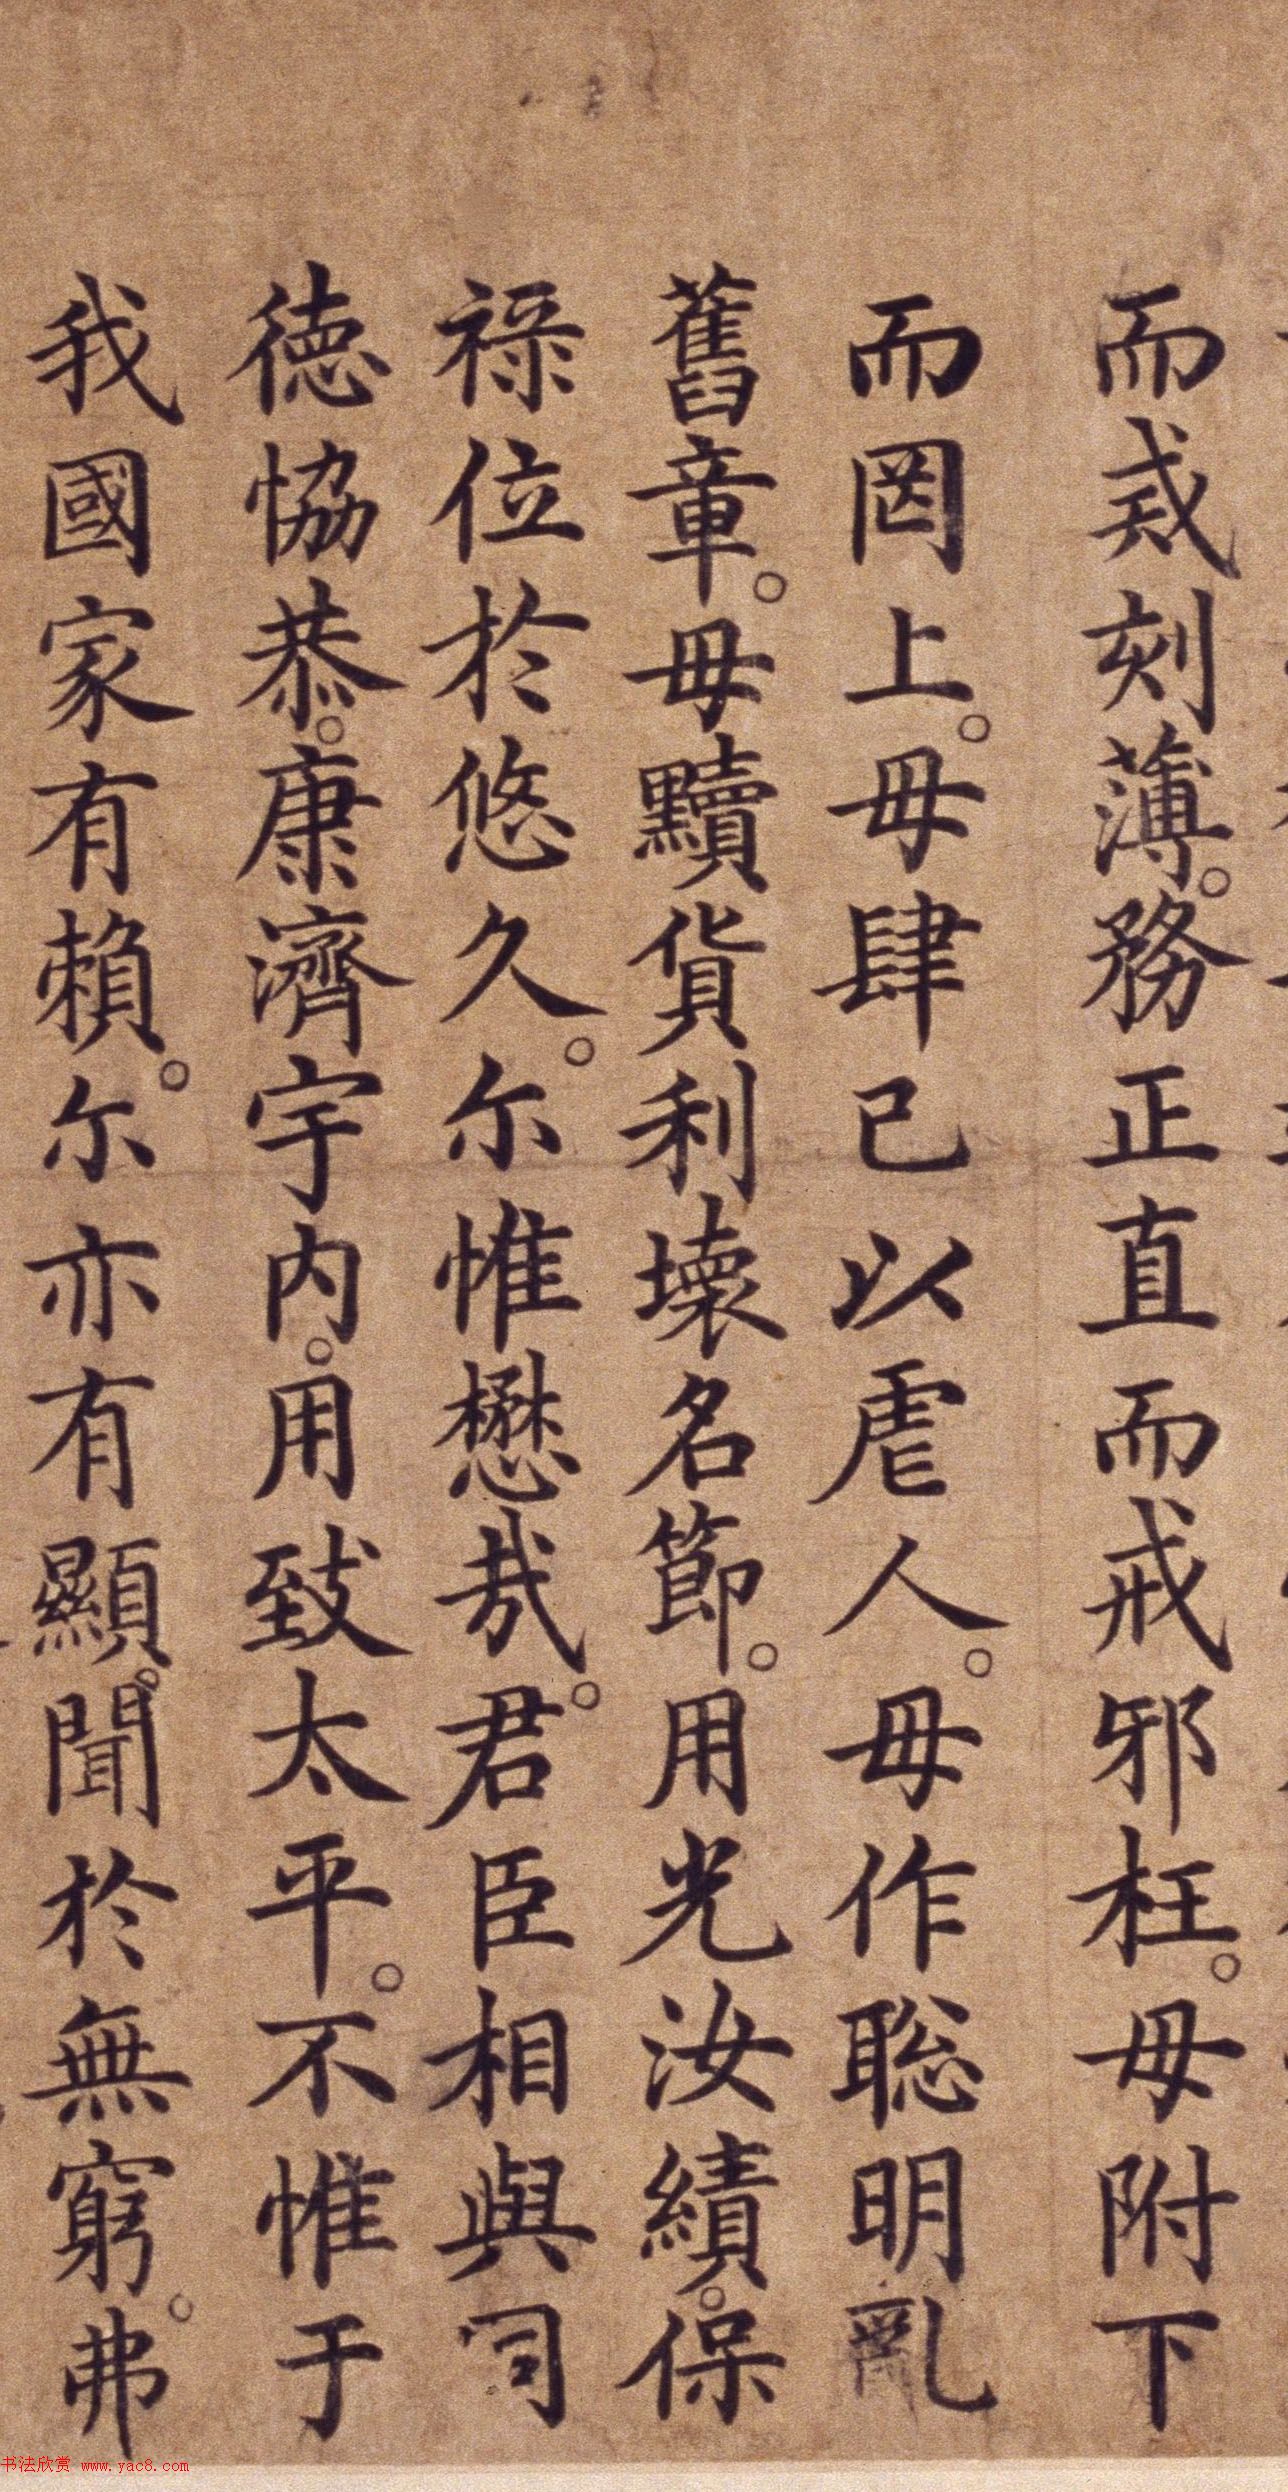 而戒刻薄。務正直而戒邪枉。毋附下
而罔上。毋肆己以虐人。毋作聡明亂
舊章。毋黷貨利壞名節。用光汝績。保
禄位於悠久。尔惟懋哉。君臣相與同
德恊恭。康濟宇内。用致太平。不惟于
我國家有賴。尔亦有顯。聞於無窮。弗
书法欣赏 www.yac8.com